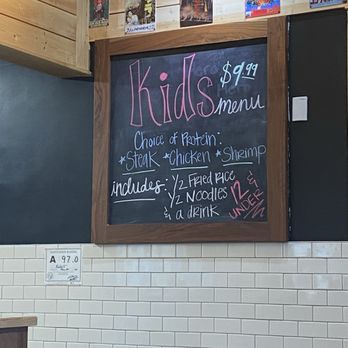 Kids
$9.99
menu
Choice of Protein:
*Steak *Chicken *Shrimp
includes: 1/2 Fried rice
1/2 Noodles
& a drink
12 &
UNDER
A 97.0